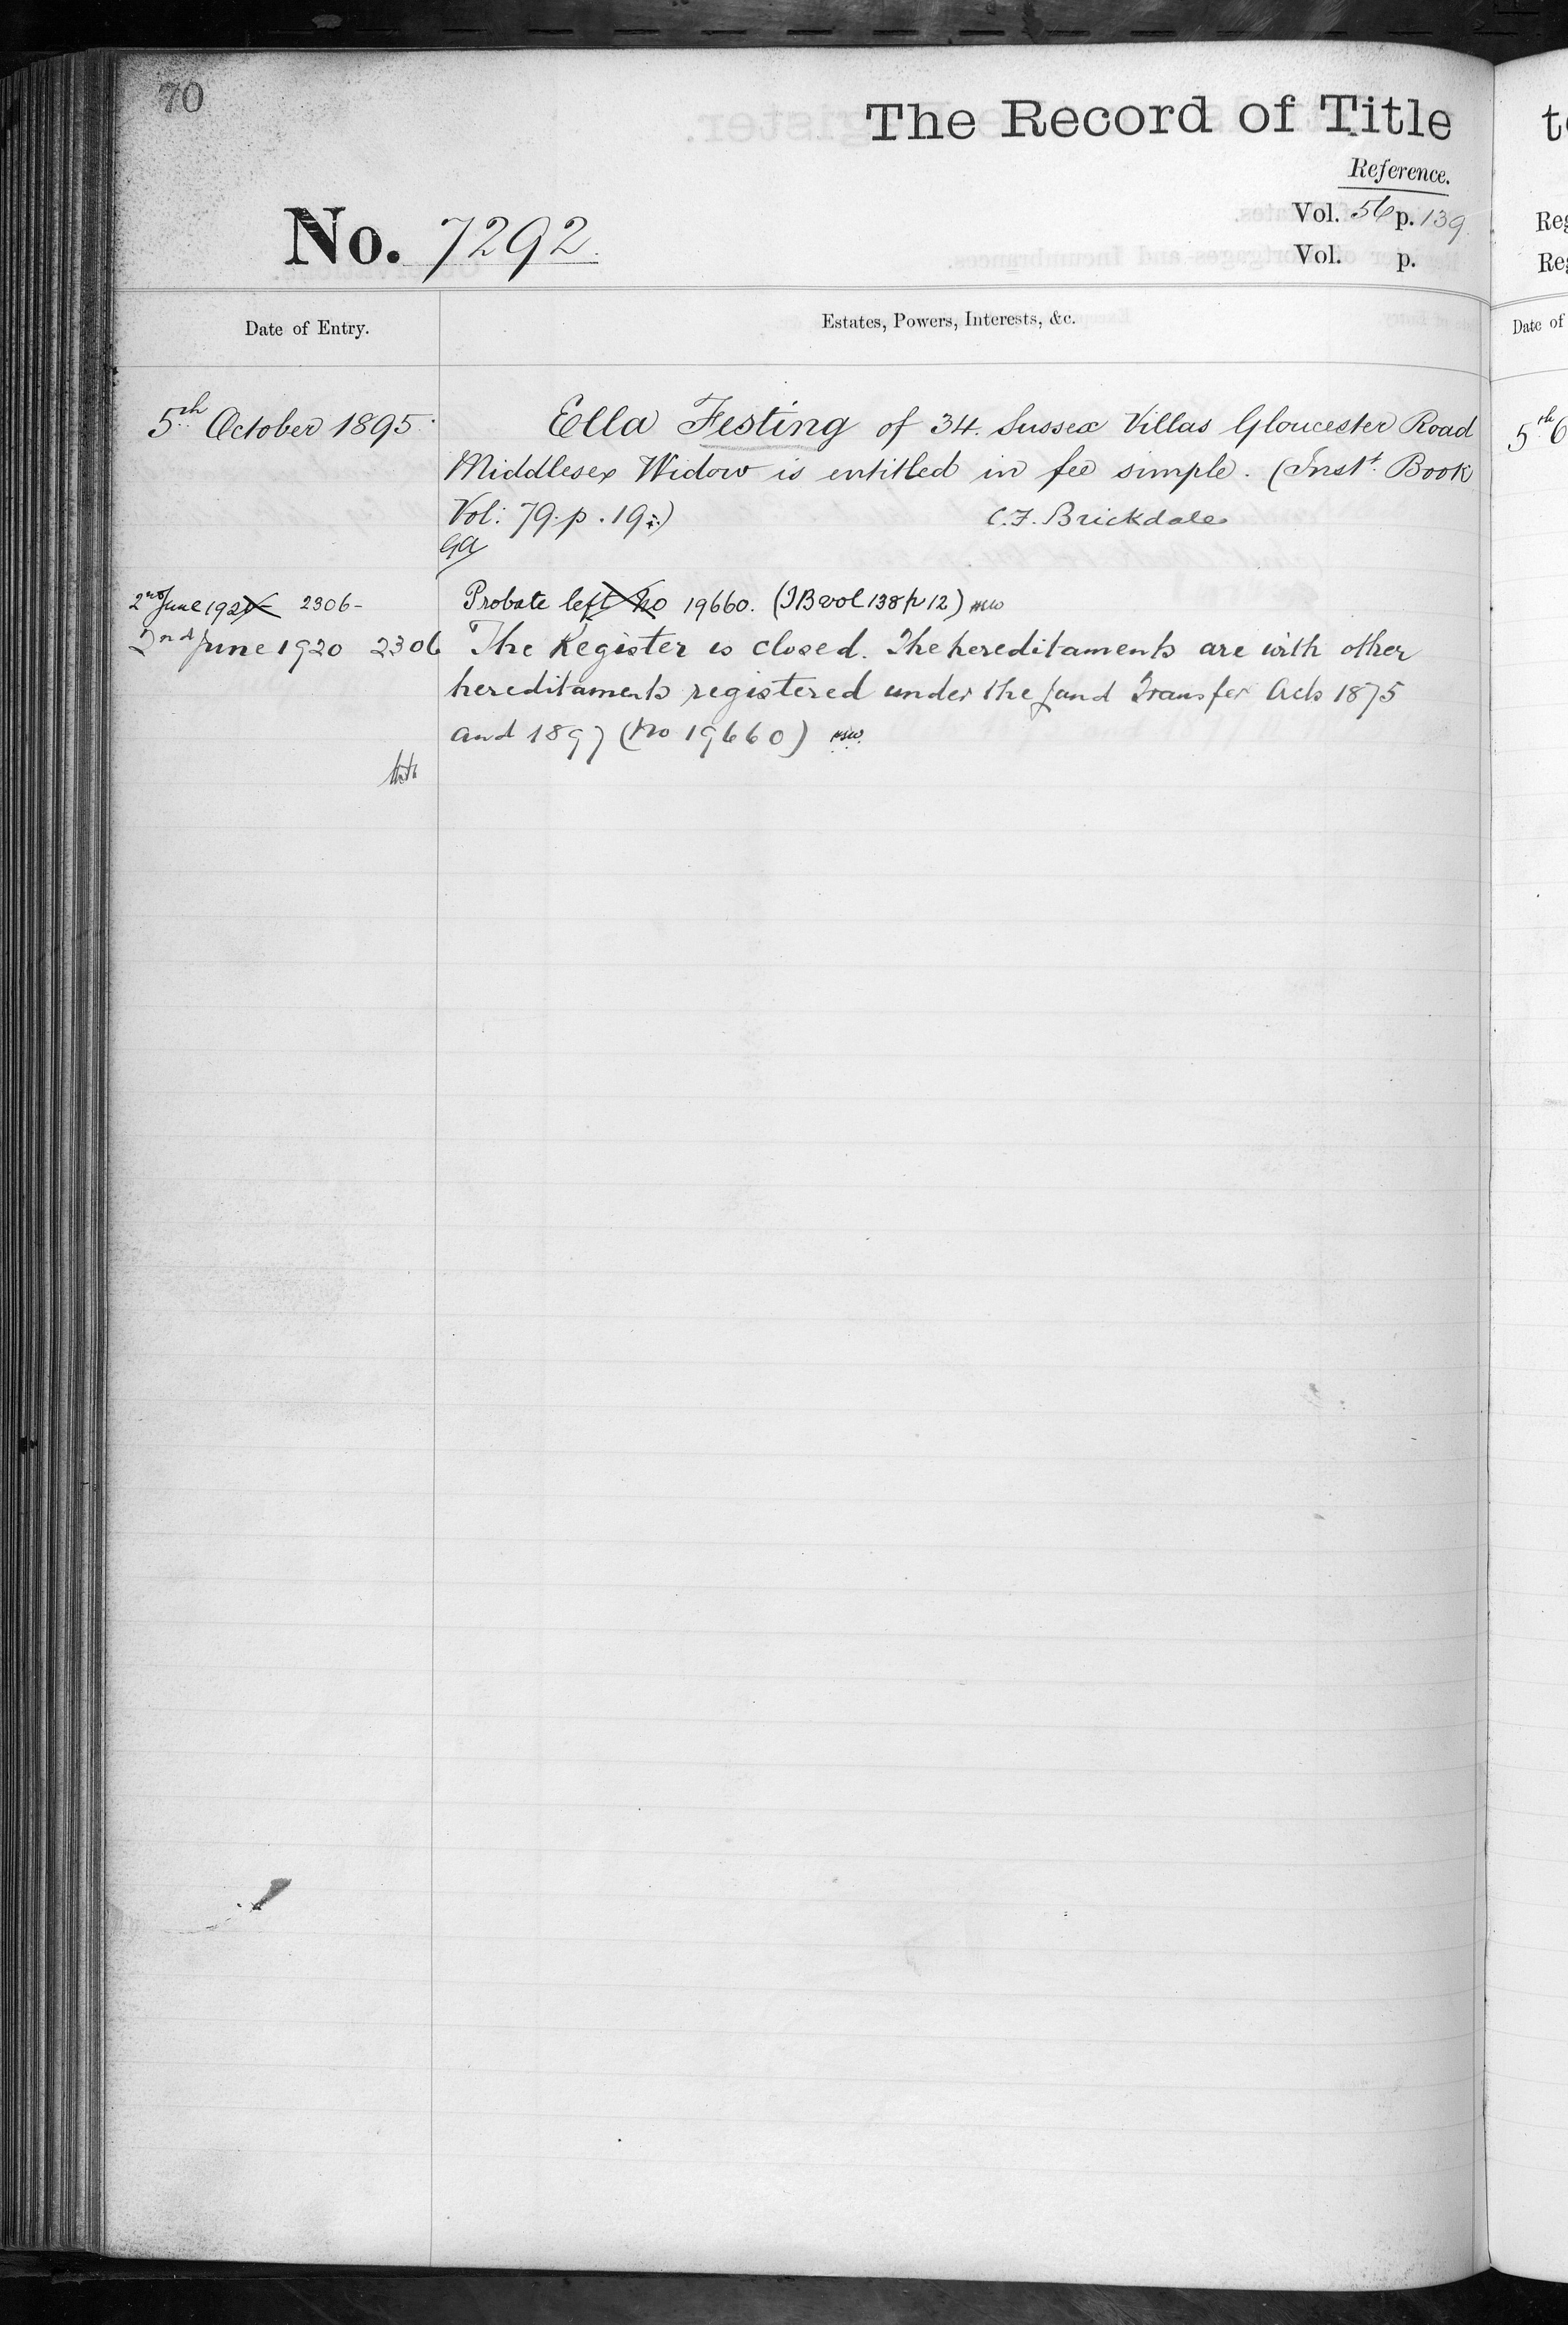 70
The Record of Title
Reference.
No. 7292.
Vol. 56 p. 139
Vol. p.
Date of Entry.
Estates, Powers, Interests, &c.
5th October 1895.
Ella Festing of 34. Sussex Villas Gloucester Road
Middlesex Widow is entitled in fee simple. (Inst. Book
Vol: 79. p. 19.)
C.F. Brickdale
GA
2nd June 192 2306-
Probate left No 19660. (IB vol 138 p 12) MSW
2nd June 1920 2306
The Register is closed. The hereditaments are with other
hereditaments registered under the Land Transfer Acts 1875
and 1897 (No 19660) MSW.
t
Reg
Re
Date of
5th O